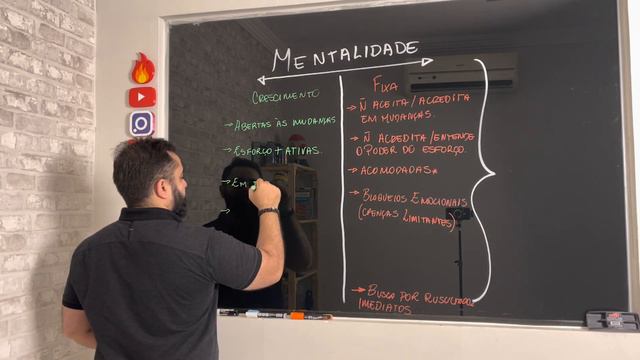 MENTALIDADE
CRESCIMENTO
→ ABERTAS ÀS MUDANÇAS
→ ESFORÇO + ATIVAS.
→ EM
→
FIXA
→ Ñ ACEITA/ACREDITA
EM MUDANÇAS.
→ Ñ ACREDITA/ENTENDE
O PODER DO ESFORÇO.
→ ACOMODADAS*
→ BLOQUEIOS EMOCIONAIS
(CRENÇAS LIMITANTES)
→ BUSCA POR RUSULTADOS
IMEDIATOS